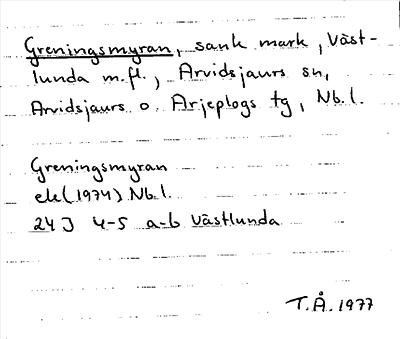 Greningsmyran, sank mark, Väst-
lunda m.fl., Arvidsjaurs sn,
Arvidsjaurs o. Arjeplogs tg, Nb.l.
Greningsmyran
ek (1974) Nb.l.
24 J 4-5 a-b Västlunda
T.Å. 1977